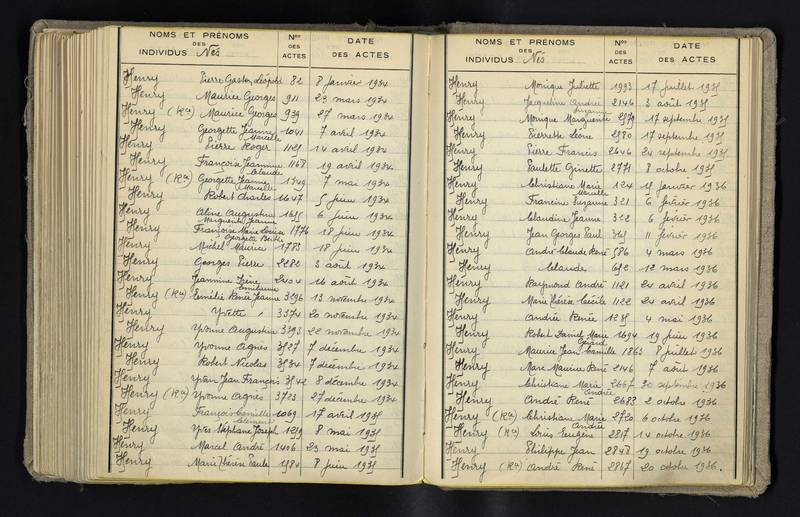 NOMS ET PRÉNOMS
DES
INDIVIDUS Nés
Nos
DES
ACTES
DATE
DES ACTES
Henry Pierre Gaston Léopold 82 8 janvier 1934
Henry Maurice Georges 911 23 mars 1934
Henry (Rn) Maurice Georges 939 27 mars 1934
Henry Georgette Jeanne Marcelle 1041 7 avril 1934
Henry Pierre Roger 1125 14 avril 1934
Henry Françoise Jeannine Claude 1168 19 avril 1934
Henry (Rn) Georgette Jeanne Marcelle 1349 7 mai 1934
Henry Robert Charles 1647 5 juin 1934
Henry Aline Augustine Marguerite Jeanne 6 juin 1934
Henry Françoise Marie Louise Georgette Berthe 1776 18 juin 1934
Henry Michel Maurice 1783 18 juin 1934
Henry Georges Pierre 2282 3 août 1934
Henry Jeannine Irène Emilienne 2404 16 août 1934
Henry (Rn) Emilie Renée Jeanne 3196 13 novembre 1934
Henry Yvette 3374 20 novembre 1934
Henry Yvonne Augustine 3393 22 novembre 1934
Henry Yvonne Agnès 3527 7 décembre 1934
Henry Robert Nicolas 3534 7 décembre 1934
Henry Yvan Jean François 3542 8 décembre 1934
Henry (Rn) Yvonne Agnès 3723 27 décembre 1934
Henry François Camille Clément 1069 17 avril 1935
Henry Yves Stéphane Joseph 1259 8 mai 1935
Henry Marcel André 1406 23 mai 1935
Henry Marie Thérèse Paule 1584 8 juin 1935
NOMS ET PRÉNOMS
DES
INDIVIDUS Nés
Nos
DES
ACTES
DATE
DES ACTES
Henry Monique Juliette 1993 17 juillet 1935
Henry Jacqueline Andrée Suzanne 2146 3 août 1935
Henry Monique Marguerite 2579 17 septembre 1935
Henry Pierrette Léone 2580 17 septembre 1935
Henry Pierre Francis 2646 24 septembre 1935
Henry Paulette Ginette 2771 8 octobre 1935
Henry Christiane Marie Marcelle 124 15 janvier 1936
Henry Francine Suzanne 321 6 février 1936
Henry Claudine Jeanne 322 6 février 1936
Henry Jean Georges Paul 365 11 février 1936
Henry André Claude René 586 4 mars 1936
Henry Claude 692 12 mars 1936
Henry Raymond André 1121 24 avril 1936
Henry Marie Thérèse Cécile 1122 24 avril 1936
Henry Andrée Renée 1235 4 mai 1936
Henry Robert Daniel Marie Gérard 1694 19 juin 1936
Henry Maurice Jean Camille 1863 8 juillet 1936
Henry Marc Maurice René 2146 7 août 1936
Henry Christiane Marie Andrée 2667 30 septembre 1936
Henry André René 2683 2 octobre 1936
Henry (Rn) Christiane Marie Andrée 2720 6 octobre 1936
Henry (Rn) Louis Eugène 2817 14 octobre 1936
Henry Philippe Jean 2848 19 octobre 1936
Henry (Rn) André René 2867 20 octobre 1936.